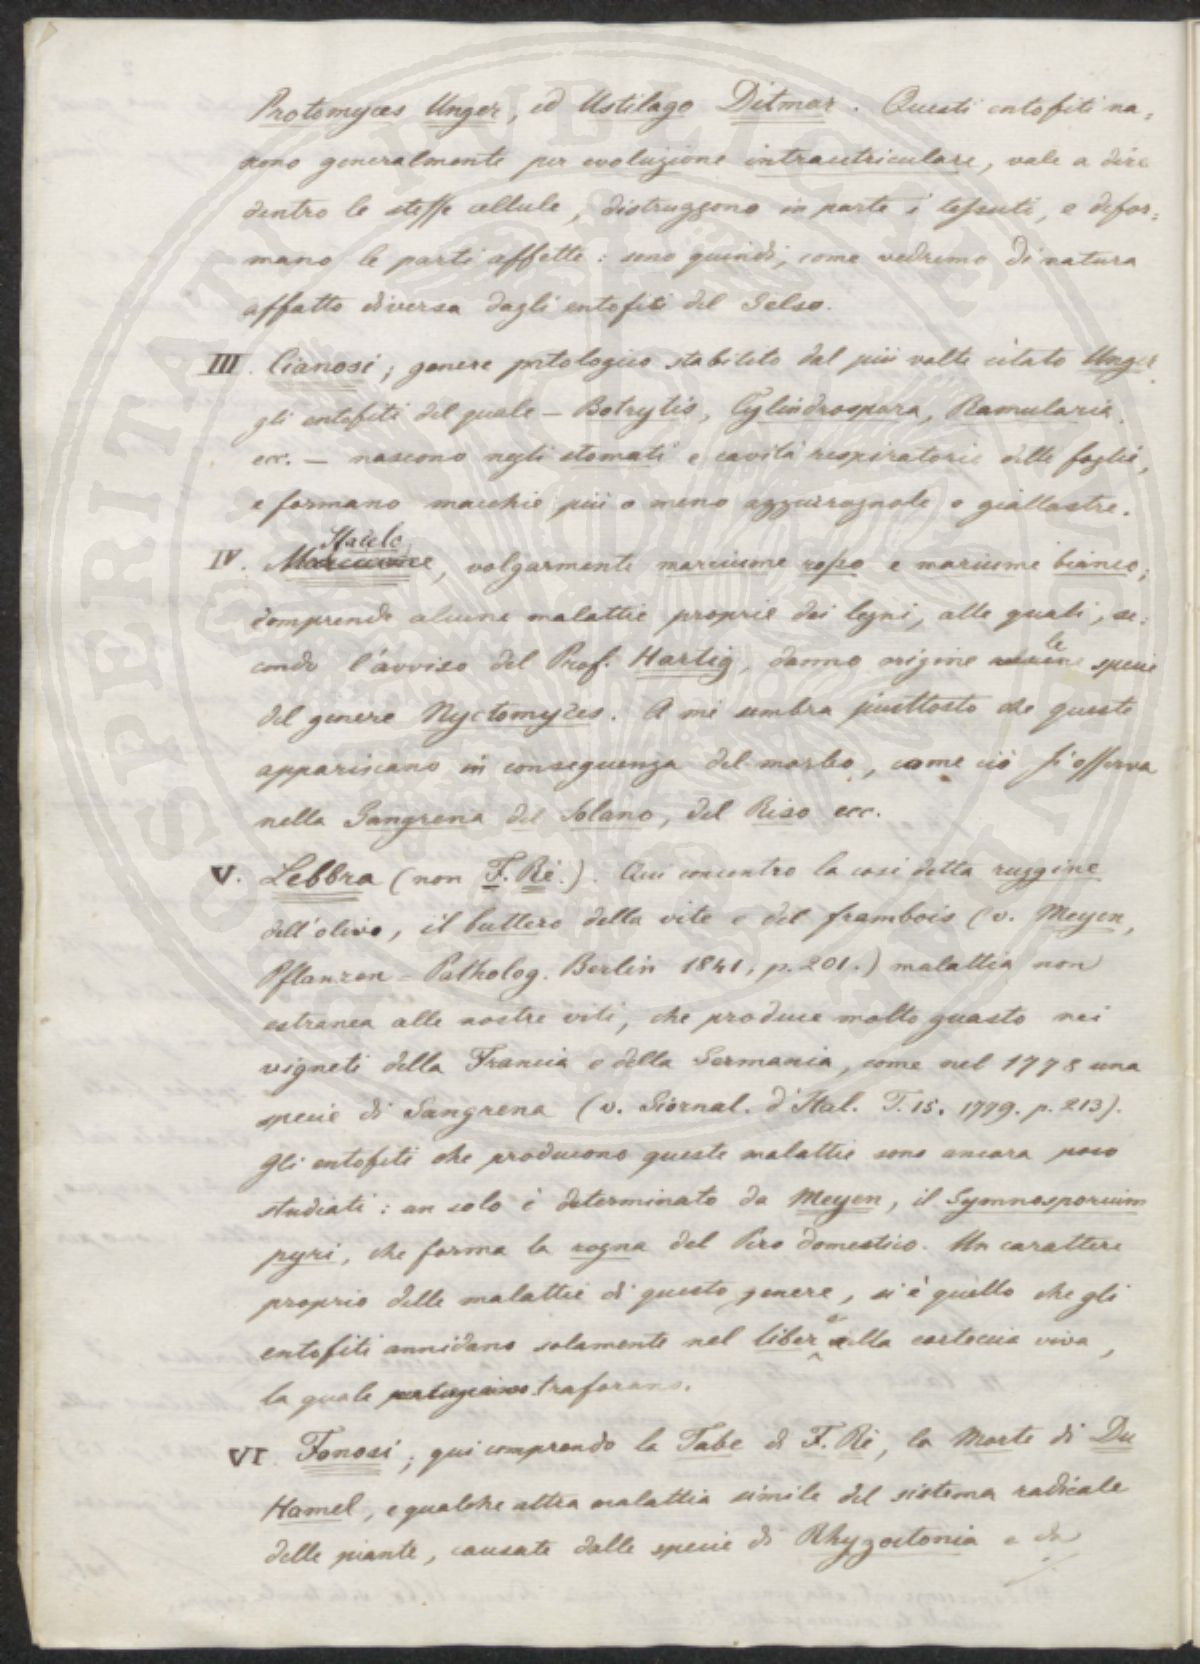 Protomyces Unger, ed Ustilago Ditmar. Questi entofiti na=
scono generalmente per evoluzione intrautriculare, vale a dire
dentro le stesse cellule, distruggono in parte i tessuti, e defor=
mano le parti affette: sono quindi, come vedremo di natura
affatto diversa dagli entofiti del Gelso.
III. Cianosi; genere patologico stabilito dal più volte citato Unger
gli entofiti del quale — Botrytis, Cylindrospora, Ramularia,
ecc. — nascono negli stomati e cavità respiratorie delle foglie,
e formano macchie più o meno azzurrognole o giallastre.
IV. , volgarmente marciume rosso e marciume bianco;
comprendo alcune malattie proprie dei legni, alle quali, se=
condo l'avviso del Prof. Hartig, danno origine le specie
del genere Nyctomyces. A me sembra piuttosto che queste
appariscano in conseguenza del morbo, come ciò si osserva
nella Gangrena del Solano, del Riso ecc.
V. Lebbra (non F. Re.). Qui concentro la così detta ruggine
dell'olivo, il buttero della vite e del frambois (v. Meyen,
Pflanzen-Patholog. Berlin 1841, p. 201.) malattia non
estranea alle nostre viti, che produce molto guasto nei
vigneti della Francia e della Germania, come nel 1778 una
specie di Gangrena (v. Giornal. d'Ital. T. 15. 1779. p. 213).
Gli entofiti che producono queste malattie sono ancora poco
studiati: un solo è determinato da Meyen, il Gymnosporium
pyri, che forma la rogna del Pero domestico. Un carattere
proprio delle malattie di questo genere, si è quello che gli
entofiti annidano solamente nel liber e nella corteccia viva,
la quale traforano.
VI. Fonosi; qui comprendo la Tabe di F. Re, la Morte di Du
Hamel, e qualche altra malattia simile del sistema radicale
delle piante, causate dalle specie di Rhyzoctonia e da